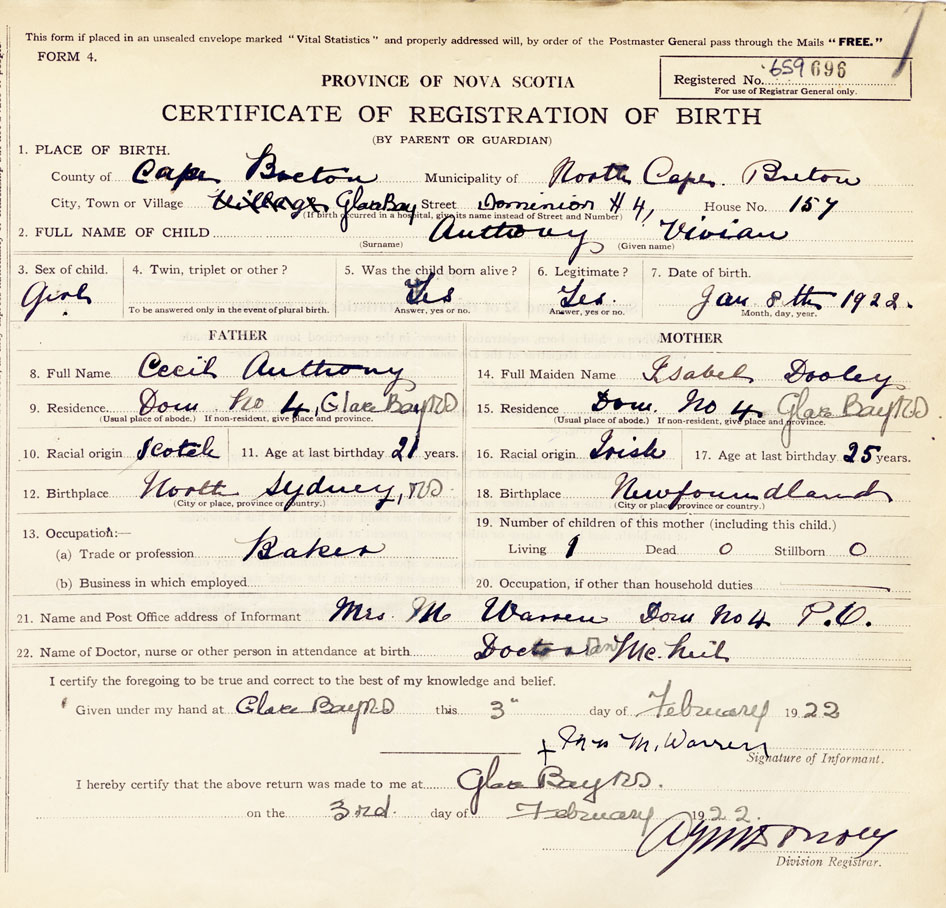 This form if placed in an unsealed envelope marked "Vital Statistics" and properly addressed will, by order of the Postmaster General pass through the Mails "FREE."
FORM 4.
PROVINCE OF NOVA SCOTIA
Registered No. 659696
For use of Registrar General only.
CERTIFICATE OF REGISTRATION OF BIRTH
(BY PARENT OR GUARDIAN)
1. PLACE OF BIRTH.
County of Cape Breton Municipality of North Cape Breton
City, Town or Village Village Glace Bay Street Dominion #4, House No. 157
(If birth occurred in a hospital, give its name instead of Street and Number)
2. FULL NAME OF CHILD Anthony Vivian
(Surname) (Given name)
3. Sex of child. 4. Twin, triplet or other? 5. Was the child born alive? 6. Legitimate? 7. Date of birth.
Girl Yes Yes. Jan 8th 1922.
To be answered only in the event of plural birth. Answer, yes or no. Answer, yes or no. Month, day, year.
FATHER MOTHER
8. Full Name Cecil Anthony 14. Full Maiden Name Isabel Dooley
9. Residence Dom No 4, Glace Bay 15. Residence Dom. No 4 Glace Bay
(Usual place of abode.) If non-resident, give place and province. (Usual place of abode.) If non-resident, give place and province.
10. Racial origin Scotch 11. Age at last birthday 21 years. 16. Racial origin Irish 17. Age at last birthday 25 years.
12. Birthplace North Sydney, 18. Birthplace Newfoundland
(City or place, province or country.) (City or place, province or country.)
13. Occupation:— 19. Number of children of this mother (including this child.)
(a) Trade or profession Baker Living 1 Dead 0 Stillborn 0
(b) Business in which employed 20. Occupation, if other than household duties
21. Name and Post Office address of Informant Mrs. M Warren Dom No 4 P.O.
22. Name of Doctor, nurse or other person in attendance at birth Doctor Mc.Neil
I certify the foregoing to be true and correct to the best of my knowledge and belief.
Given under my hand at Glace Bay this 3" day of February 1922
+ Mrs M. Warren
Signature of Informant.
I hereby certify that the above return was made to me at Glace Bay
on the 3rd. day of February 1922.
Division Registrar.